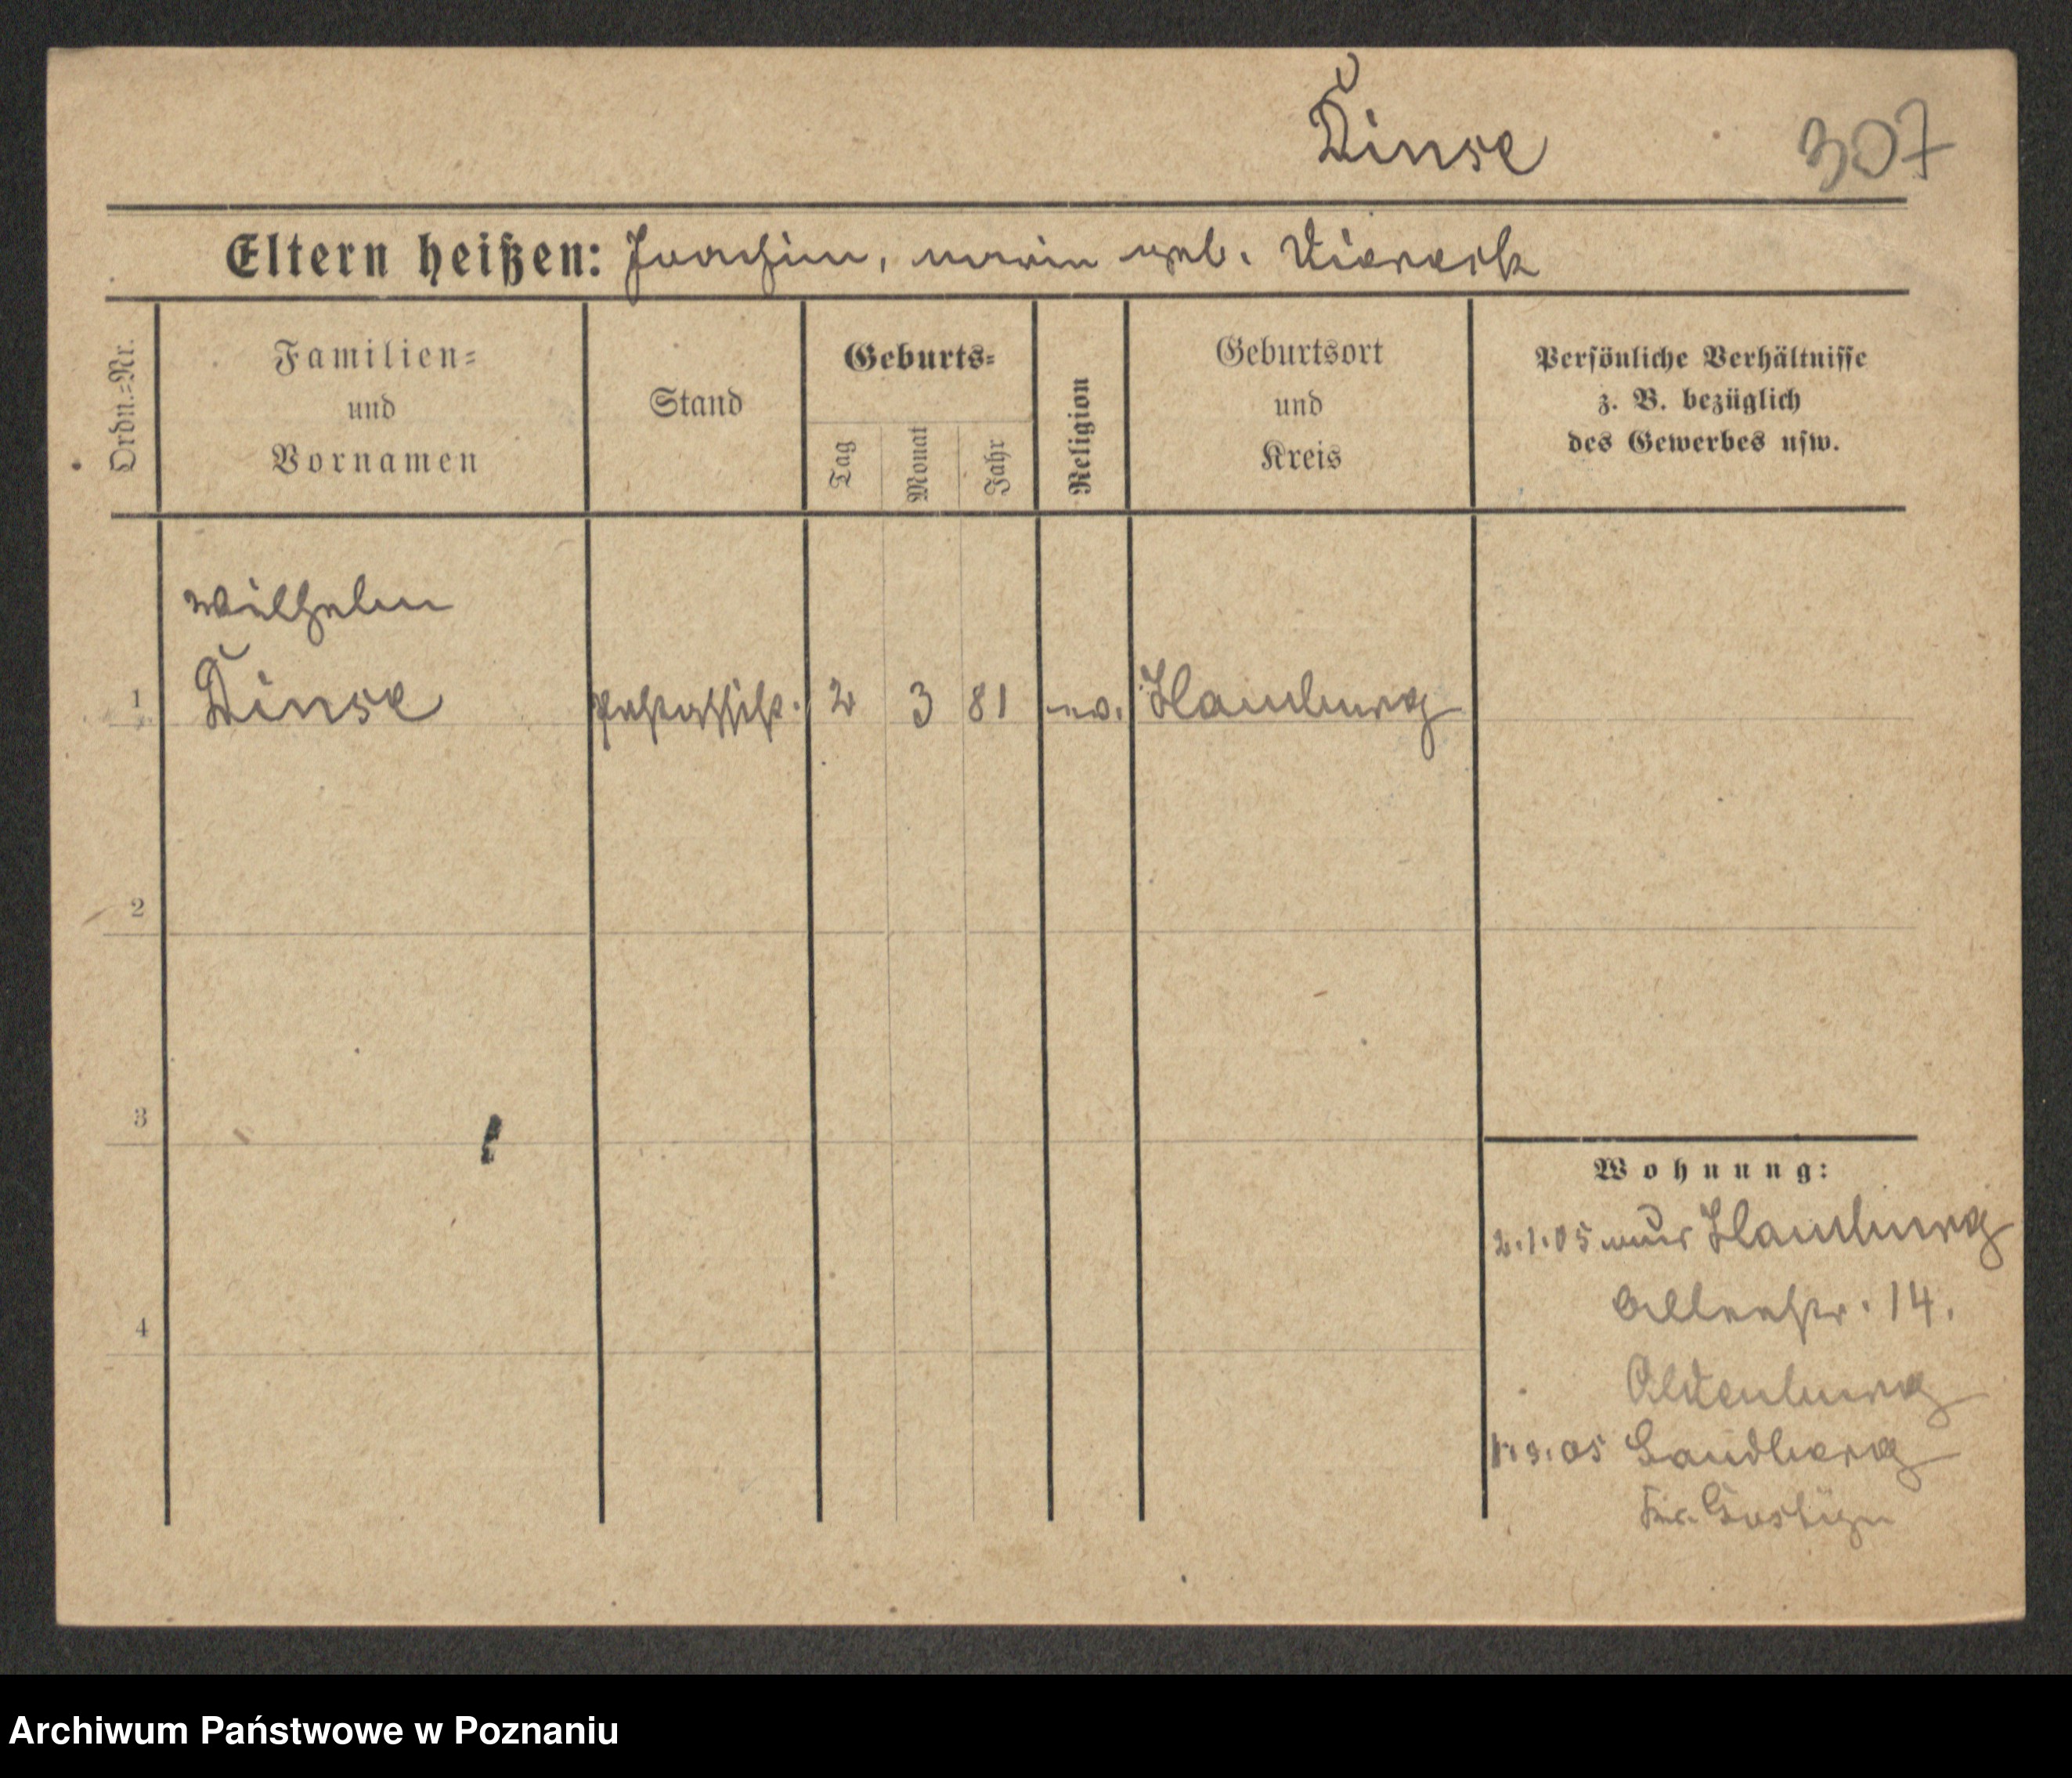 Dinse 307
Eltern heißen: Joachim, Marie geb. Viereck
Ordn.=Nr.
Familien=
und
Vornamen
Stand
Geburts=
Tag
Monat
Jahr
Religion
Geburtsort
und
Kreis
Persönliche Verhältnisse
z. B. bezüglich
des Gewerbes usw.
Wilhelm
1 Dinse 2 3 81 ev. Hamburg
2
3
4
Wohnung:
2.1.05 aus Hamburg
Alleestr. 14.
Altenburg
9.05 Sandberg
Kr. Gostyn
Archiwum Państwowe w Poznaniu